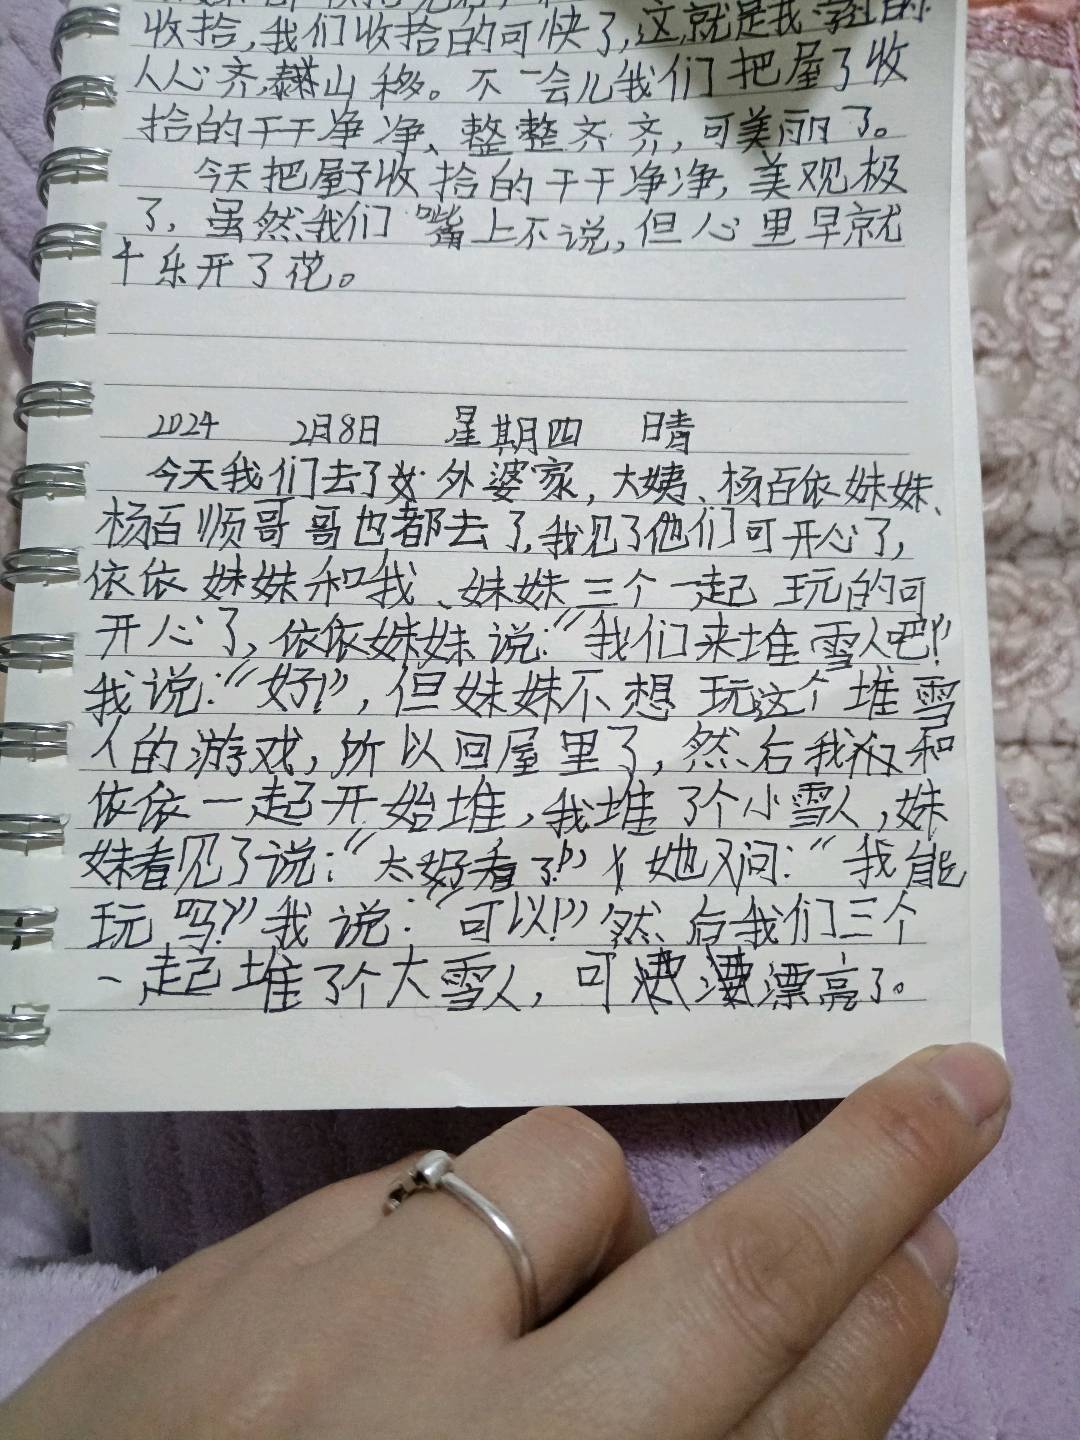 收拾,我们收拾的可快了,这就是我学过的
人心齐,泰山移。不一会儿我们把屋了收
拾的干干净净、整整齐齐,可美丽了。
今天把屋子收拾的干干净净,美观极
了,虽然我们嘴上不说,但心里早就
乐开了花。
2024 2月8日 星期四 晴
今天我们去了外婆家,大姨、杨百依妹妹、
杨百顺哥哥也都去了,我见了他们可开心了,
依依妹妹和我、妹妹三个一起玩的可
开心了,依依妹妹说:“我们来堆雪人吧!”
我说:“好!”,但妹妹不想玩这个堆雪
人的游戏,所以回屋里了,然后我和
依依一起开始堆,我堆了个小雪人,妹
妹看见了说:“太好看了!”她又问:“我能
玩吗?”我说:“可以!”然后我们三个
一起堆了个大雪人,可漂亮了。